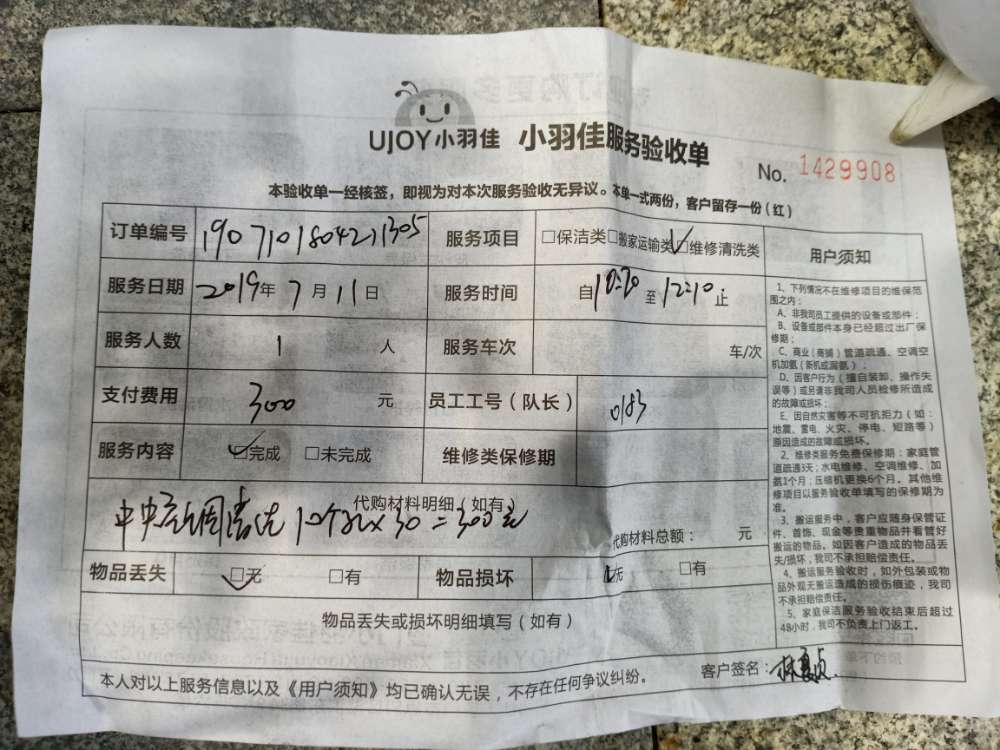 UJOY小羽佳 小羽佳服务验收单
No. 1429908
本验收单一经核签，即视为对本次服务验收无异议。本单一式两份，客户留存一份（红）
订单编号 服务项目 □保洁类□搬家运输类□维修清洗类
服务日期 2019年7月11日 服务时间 自 至12:10止
服务人数 1 人 服务车次 车/次
支付费用 300 元 员工工号（队长） 0183
服务内容 □完成 □未完成 维修类保修期
代购材料明细（如有）
中央空调清洗 10个孔×30=300元
代购材料总额： 元
物品丢失 □无 □有 物品损坏 □无 □有
物品丢失或损坏明细填写（如有）
本人对以上服务信息以及《用户须知》均已确认无误，不存在任何争议纠纷。 客户签名：
用户须知
1、下列情况不在维修项目的维保范
围之内：
A、非我司员工提供的设备或部件；
B、设备或部件本身已经超过出厂保
修期；
C、商业（商铺）管道疏通、空调空
机加氨（新机或漏氨）；
D、因客户行为（擅自装卸、操作失
误等）或另请非我司人员检修所造成
的故障或损坏；
E、因自然灾害等不可抗拒力（如：
地震、雷电、火灾、停电、短路等）
原因造成的故障或损坏。
2、维修类服务免费保修期：家庭管
道疏通3天；水电维修、空调维修、加
氨1个月；压缩机更换6个月。其他维
修项目以服务验收单填写的保修期为
准。
3、搬运服务中，客户应随身保管证
件、首饰、现金等贵重物品并看管好
搬运的物品，如因客户造成的物品丢
失/损坏，我司不承担赔偿责任。
4、搬运服务验收时，如外包装或物
品外观无搬运造成的损伤痕迹，我司
不承担赔偿责任。
5、家庭保洁服务验收结束后超过
48小时，我司不负责上门返工。